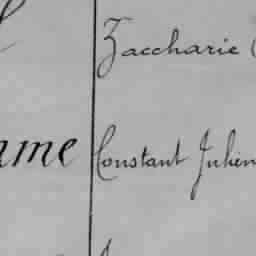 Zaccharie
Constant Julien